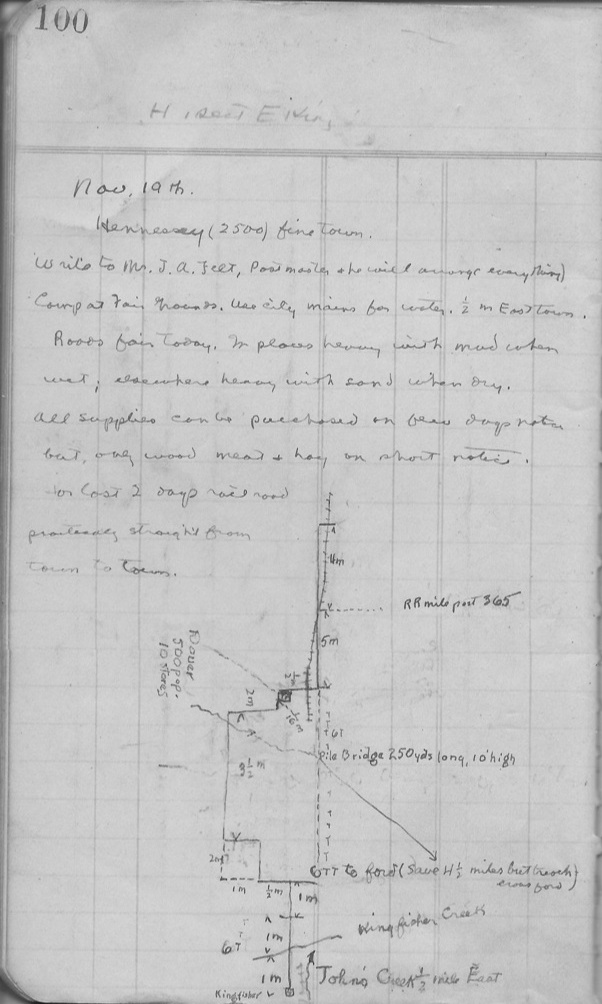 100
Nov, 19th.
Hennessey (2500) fine town.
Write to Mr. J. A. Felt, Postmaster & he will arrange everything)
Camp at Fair Grounds. Use city mains for water. ½ m East town.
Roads fair today. In places heavy with mud when
wet; elsewhere heavy with sand when dry.
All supplies can be purchased on few days notice
but, only wood meat & hay on short notice.
For last 2 days railroad
practically straight from
town to town.
4m
RR mile post 365
5m
Dover
500 pop.
10 stores
½m
2m
1/16 m
6T
Pile Bridge 250 yds long, 10' high
3½ m
2m
6TT to ford (Save 4½ miles but (rock)
cross ford)
1m
½m
1m
Kingfisher Creek
1m
6T
1m
John's Creek ½ mile East
Kingfisher